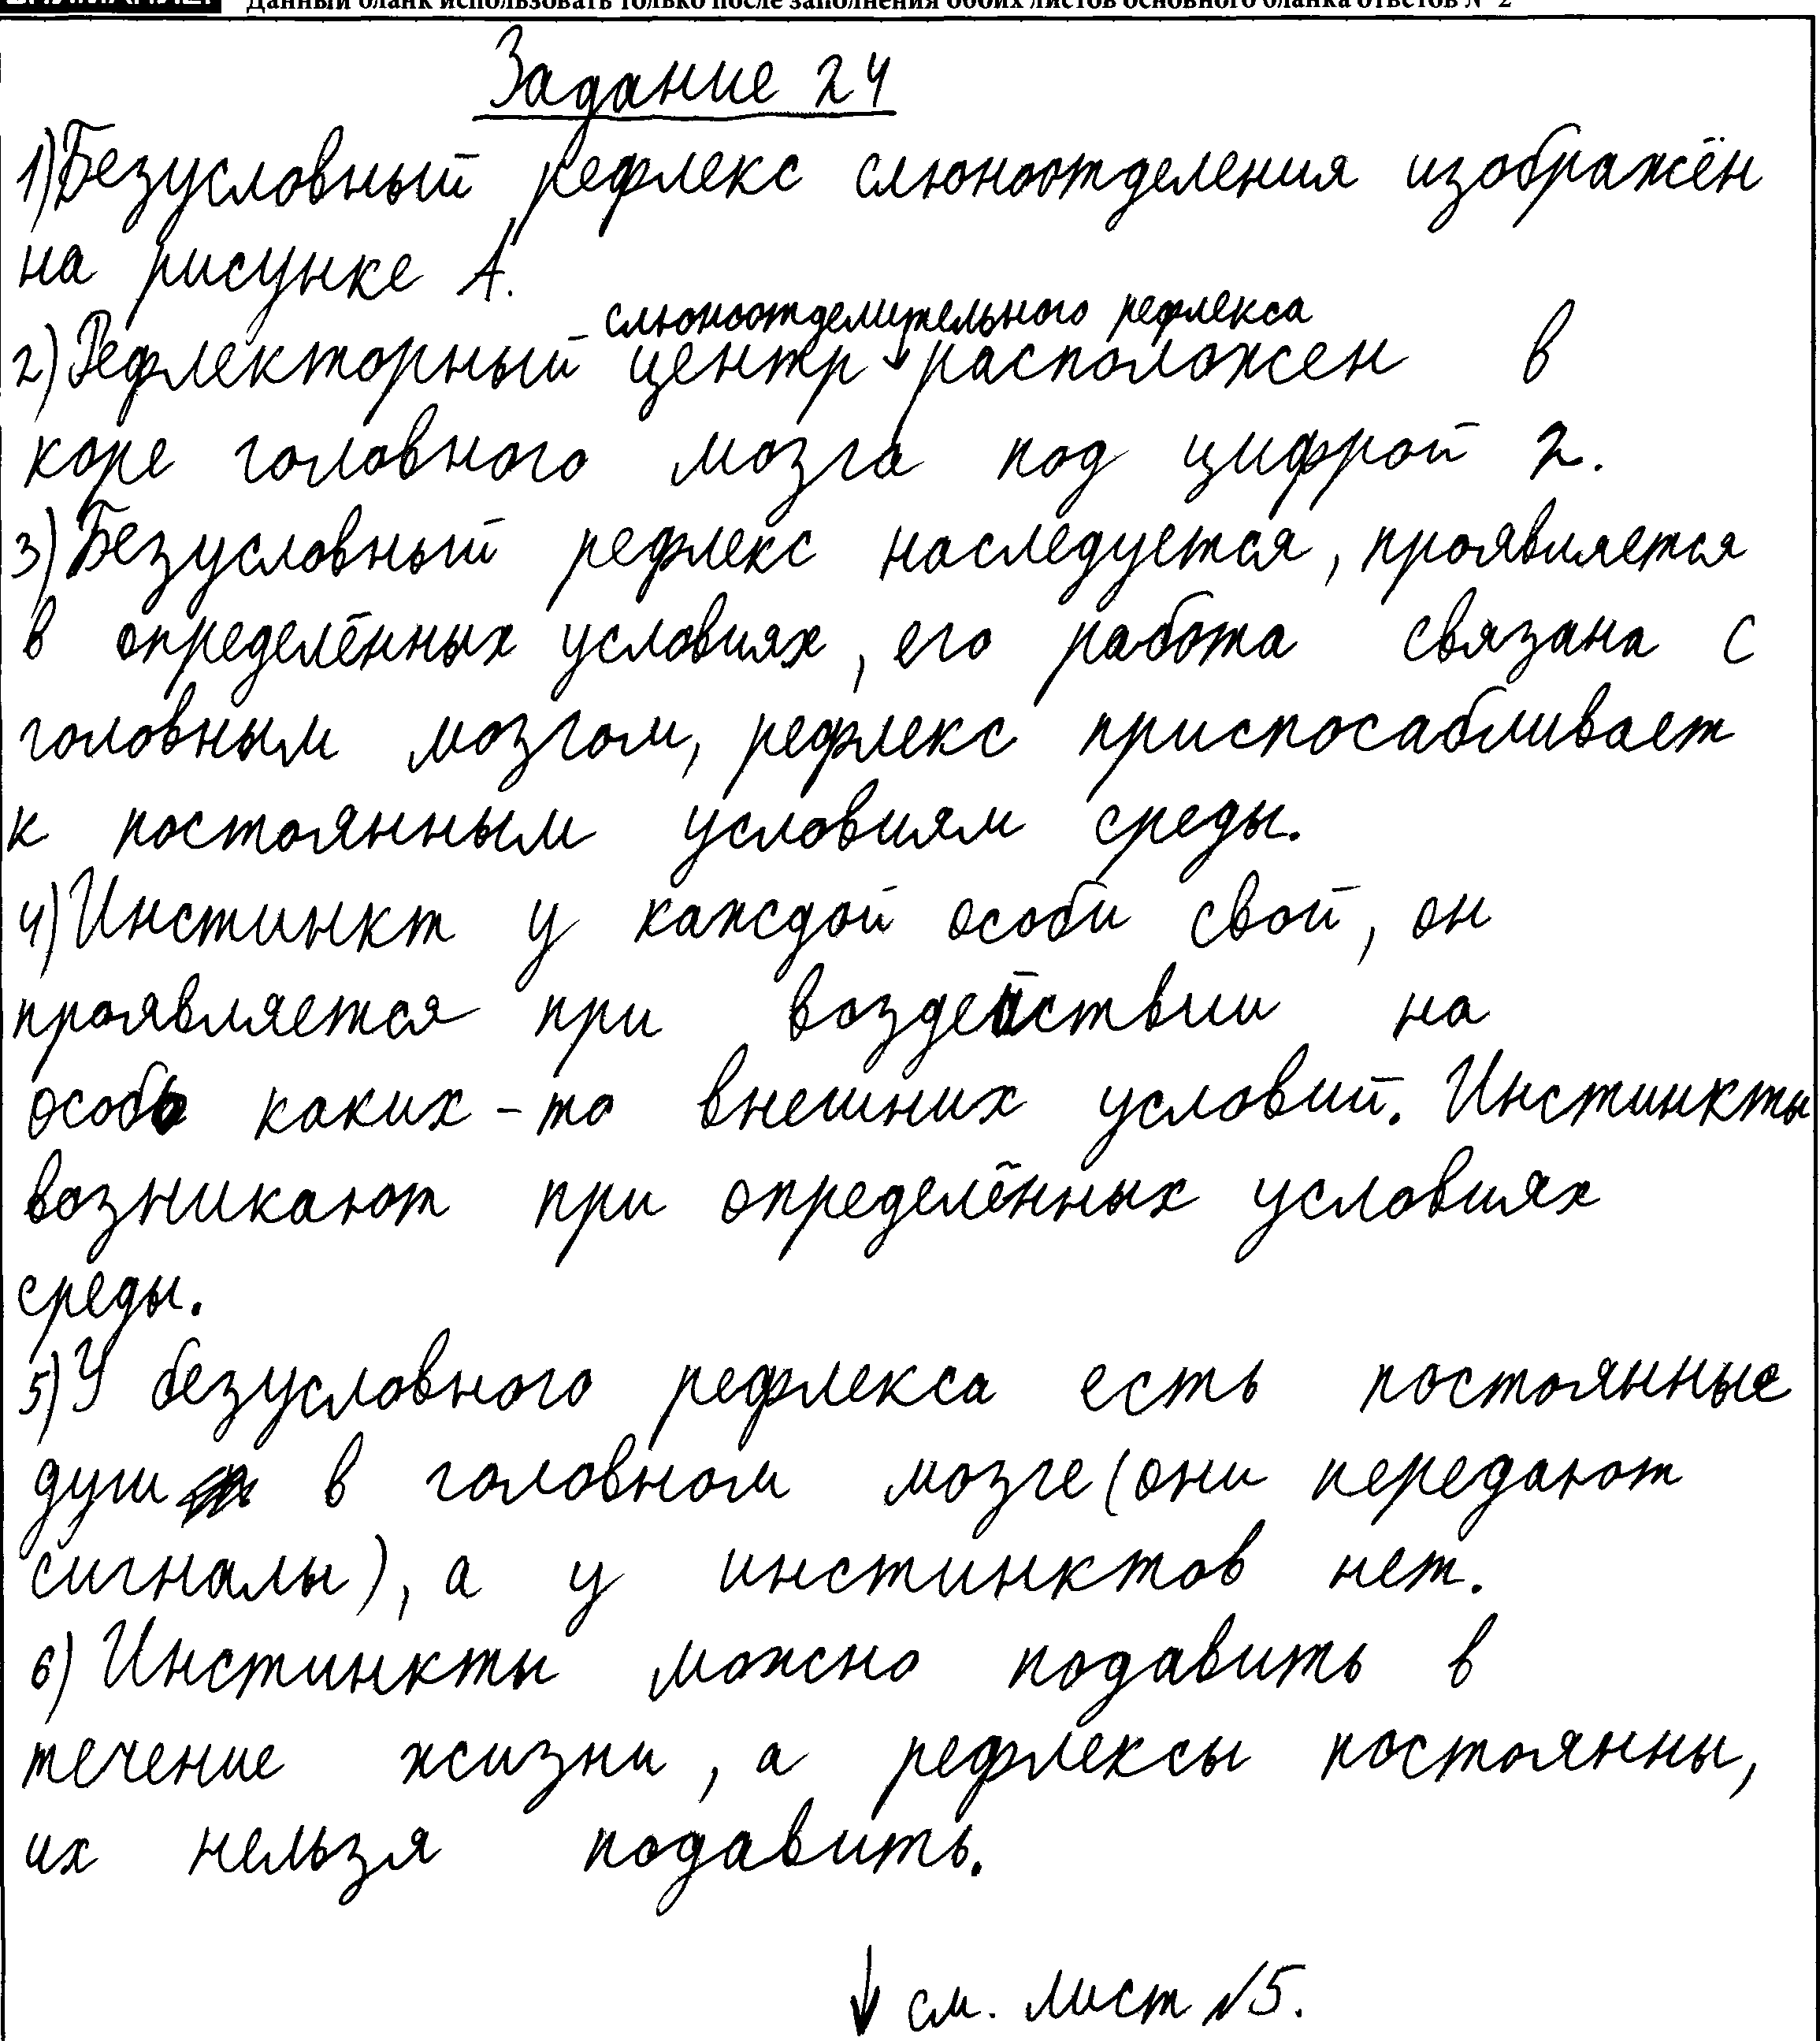 Данный бланк использовать только после заполнения обоих листов основного бланка ответов № 2
Задание 24
1) Безусловный рефлекс слюноотделения изображён
на рисунке А.
слюноотделительного рефлекса
2) Рефлекторный центр расположен в
коре головного мозга под цифрой 2.
3) Безусловный рефлекс наследуется, проявляется
в определённых условиях, его работа связана с
головным мозгом, рефлекс приспосабливает
к постоянным условиям среды.
4) Инстинкт у каждой особи свой, он
проявляется при воздействии на
особь каких-то внешних условий. Инстинкты
возникают при определённых условиях
среды.
5) У безусловного рефлекса есть постоянные
дуги в головном мозге (они передают
сигналы), а у инстинктов нет.
6) Инстинкты можно подавить в
течение жизни, а рефлексы постоянны,
их нельзя подавить.
↓ см. лист №5.